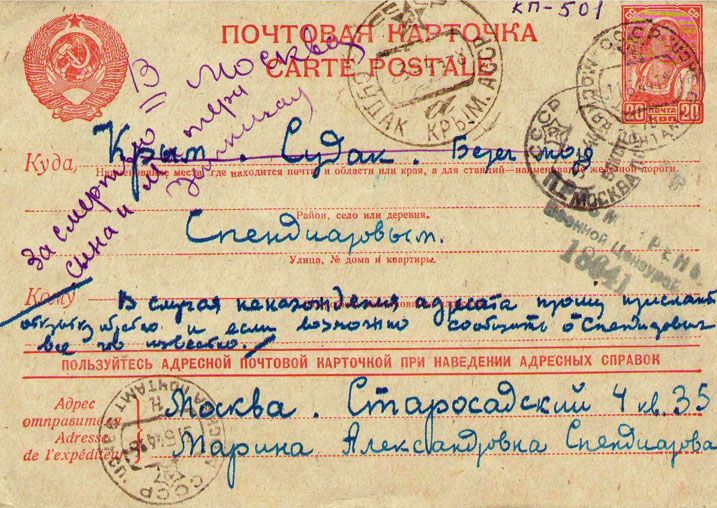 КП-501
ПОЧТОВАЯ КАРТОЧКА
CARTE POSTALE
В Москва
За смертью
сына и матери
СССР
20 ПОЧТА 20
КОП
СУДАК КРЫМ. АССР
СССР МОСКВА
Куда,
Крым. Судак. Берег моря
Наименование места, где находится почта, и области или края, а для станций—наименование железной дороги.
Район, село или деревня.
Спендиаровым.
Улица, № дома и квартиры.
Военной Цензурой
Кому
В случая ненахождения адресата прошу прислать
открытку обратно и если возможно сообщить о Спендиаровых
все что известно.
ПОЛЬЗУЙТЕСЬ АДРЕСНОЙ ПОЧТОВОЙ КАРТОЧКОЙ ПРИ НАВЕДЕНИИ АДРЕСНЫХ СПРАВОК
Адрес
отправителя
Adresse
de l'expéditeur
Москва. Старосадский 4 кв. 35
Марина Александровна Спендиарова
СССР